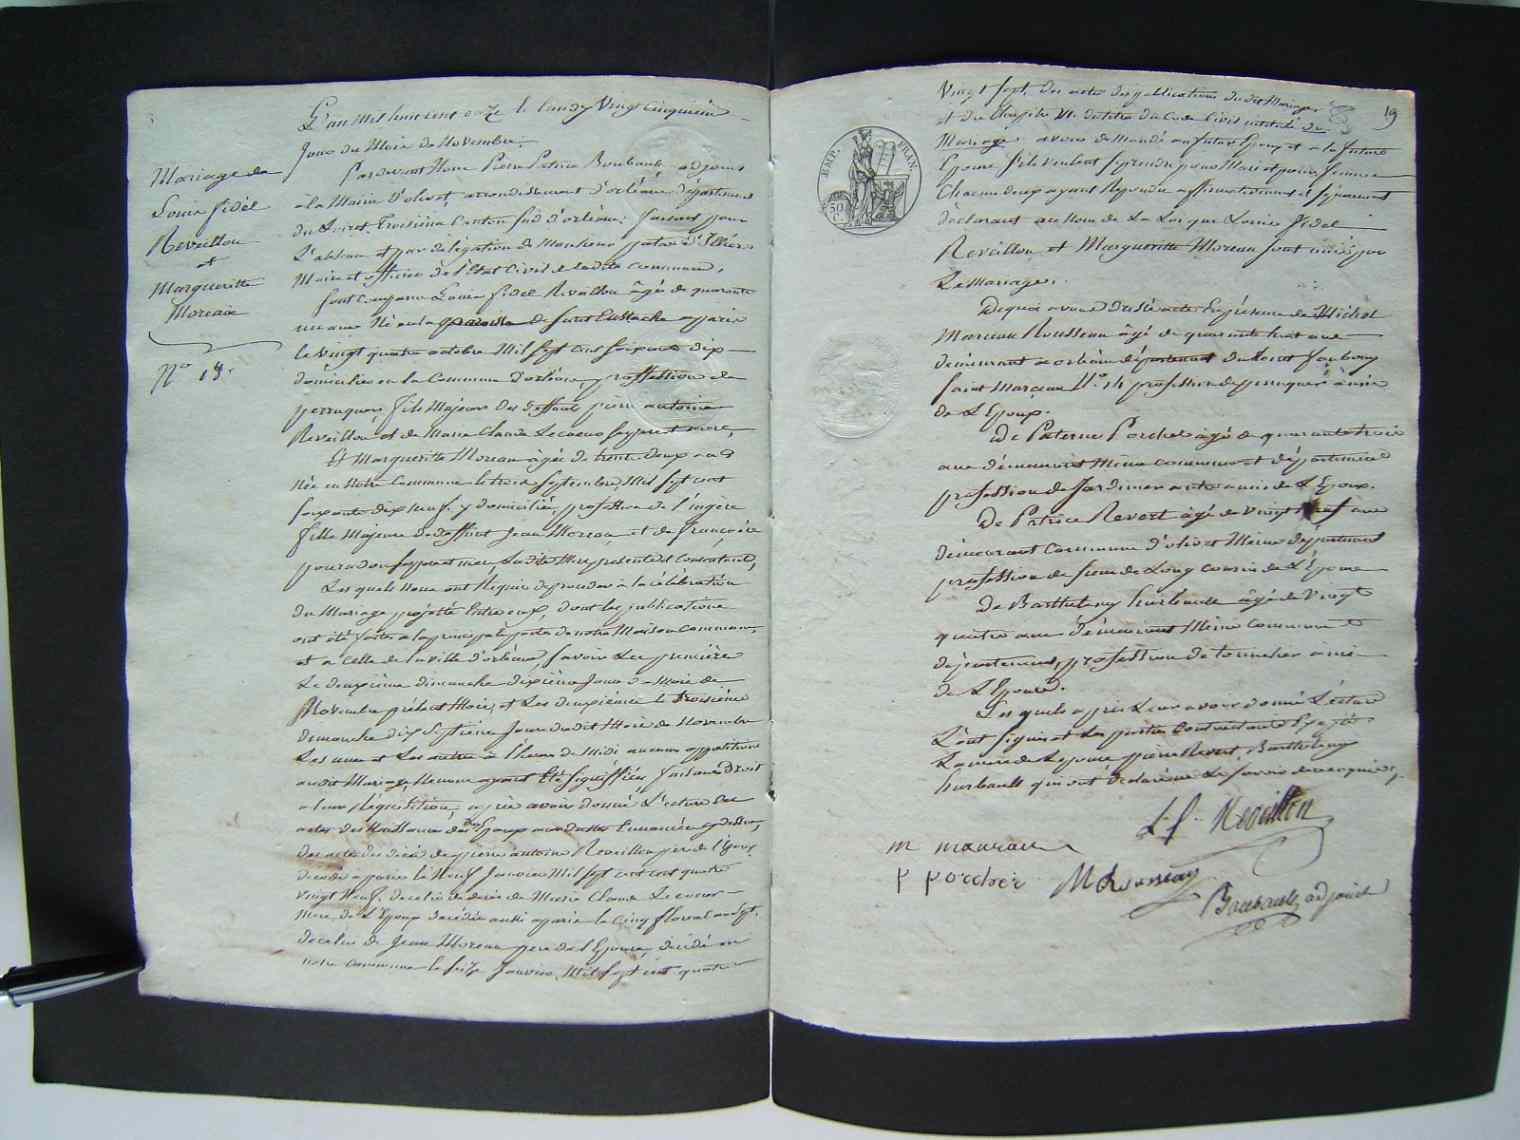 L'an Mil huit cent onze le lundy Vingt Cinquieme
Jour du Mois de Novembre.
Mariage de
Louis fidél
Reveillon
et
Margueritte
Moreau
N° 19.
Pardevant Nous Pierre Patrice Boubault adjoint
à la Mairie d'olivet, arrondissement d'orléans Département
du Loiret, Troisième Canton sud d'orléans; faisant pour
L'absence et par délégation de Monsieur
Maire et officier de l'Etat Civil de ladite Commune,
sont comparus Louis fidel Reveillon âgé de quarante
un ans Né en la paroisse de Saint Eustache a paris
le Vingt quatre octobre Mil sept cent soixante dix
domicilié en la Commune d'orléans, profession de
perruquier, fils Majeur des deffunt pierre antoine
Reveillon, et de Marie Claude Lecoeur ses pere et mere,
Et Margueritte Moreau âgée de trente deux ans
Née en Notre Commune le trois Septembre, Mil sept cent
soixante dix neuf, y domiciliée, profession de l'ingère
fille Majeure de deffunt Jean Moreau et de françoise
ses pere et mere Ladite Mere présente et Consentante,
Lesquels nous ont Requis de proceder à la célébration
du Mariage projetté Entre eux, dont les publications
ont été faites a la principale porte de notre Maison Commune,
et a celle de la ville d'orléans, savoir La premiere
Le deuxième dimanche dixième Jour du Mois de
Novembre présent Mois, et La deuxième le troisième
dimanche dix Septième Jour dudit Mois de Novembre
Les unes et Les autres a l'heure de Midi aucune opposition
audit Mariage Ne nous ayant Eté Signiffiée, faisant Droit
a leur Réquisition, après avoir donné L'ecture des
actes de Naissance des dits Epoux aux dattes Enoncées cy dessus,
des actes de décès de pierre antoine Reveillon pere de l'Epoux
décédé a paris le Neuf Janvier Mil sept cent quatre
vingt Neuf, de celui de décès de Marie Claude Lecoeur
Mere de L'Epoux décédée aussi a paris le Cinq floréal an Sept,
de celui de Jean Moreau pere de l'Epouse, décédé en
notre Commune le seize Janvier, Mil sept cent quatre
19
Vingt Sept, des actes des publications dudit Mariage
et du Chapitre VI. du titre du Code Civil intitulé du
Mariage avons demandé au futur Epoux et a la future
Epouse s'ils veulent se prendre pour Mari et pour femme
Chacun deux ayant Répondu affirmativement et séparement
déclarons au Nom de La Loi que Louis Fidel
Reveillon et Margueritte Moreau sont unis par
Le Mariage.
EMP. FRAN.
50 C.
De quoi avons Dressé acte En présence de Michel
Moreau Rousseau âgé de quarante huit ans
demeurant a orléans département du Loiret faubourg
Saint Marceau N° 14 profession de perruquier amie
de L'Epoux.
De Paterne Porcher âgé de quarante trois
ans démeurant Même commune et département
profession de Jardinier autre amie de L'Epoux.
De Patrice Revert âgé de Vingt Neuf ans
demeurant Commune d'olivet Même département
profession de Sieur de Long cousin de L'Epouse
De Barthelemy hurbault âgé de Vingt
quatre ans démeurant Même Commune et
département, profession de tonnelier amie
de L'Epouse.
Lesquels après Leur avoir donné L'ecture
L'ont signés et Les parties Contractantes Excepté
La mere de L'epouse pierre Revert, Barthelemy
hurbault qui ont déclarés ne Le savoir de ce requis,
L. f. Reveillon
m maurau
p porcher M Rousseau
Boubault, adjoint